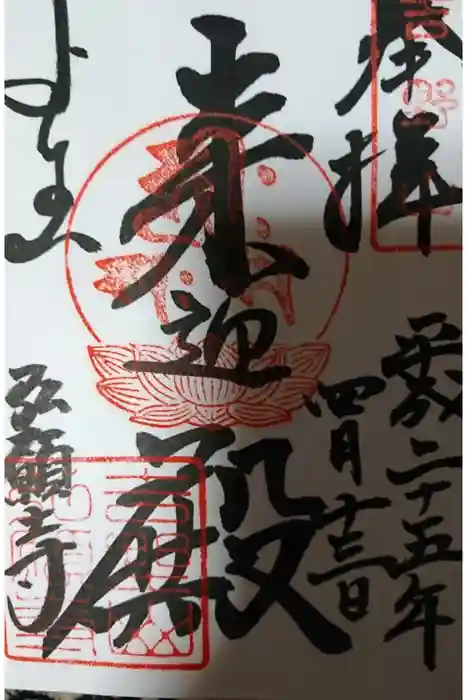 奉拝
平成二十五年
四月十三日
来迎殿
よしの
弘願寺